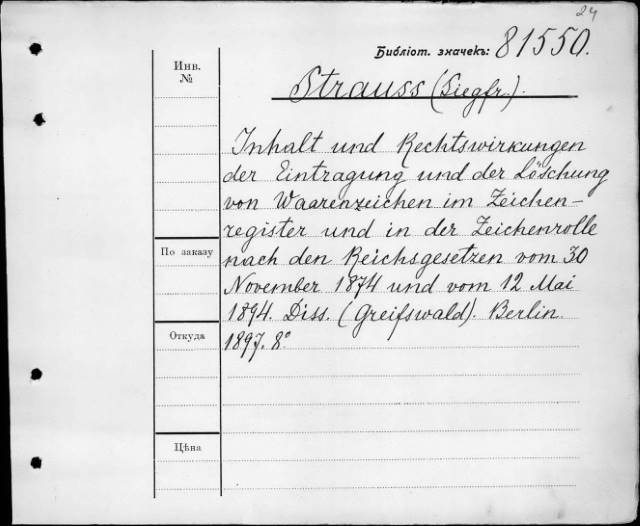 24
Библіот. значекъ: 81550.
Инв.
№
Strauss (Siegfr.).
Inhalt und Rechtswirkungen
der Eintragung und der Löschung
von Waarenzeichen im Zeichen-
register und in der Zeichenrolle
По заказу
nach den Reichsgesetzen vom 30
November 1874 und vom 12 Mai
1894. Diss. (Greifswald). Berlin.
Откуда
1897. 8°
Цѣна